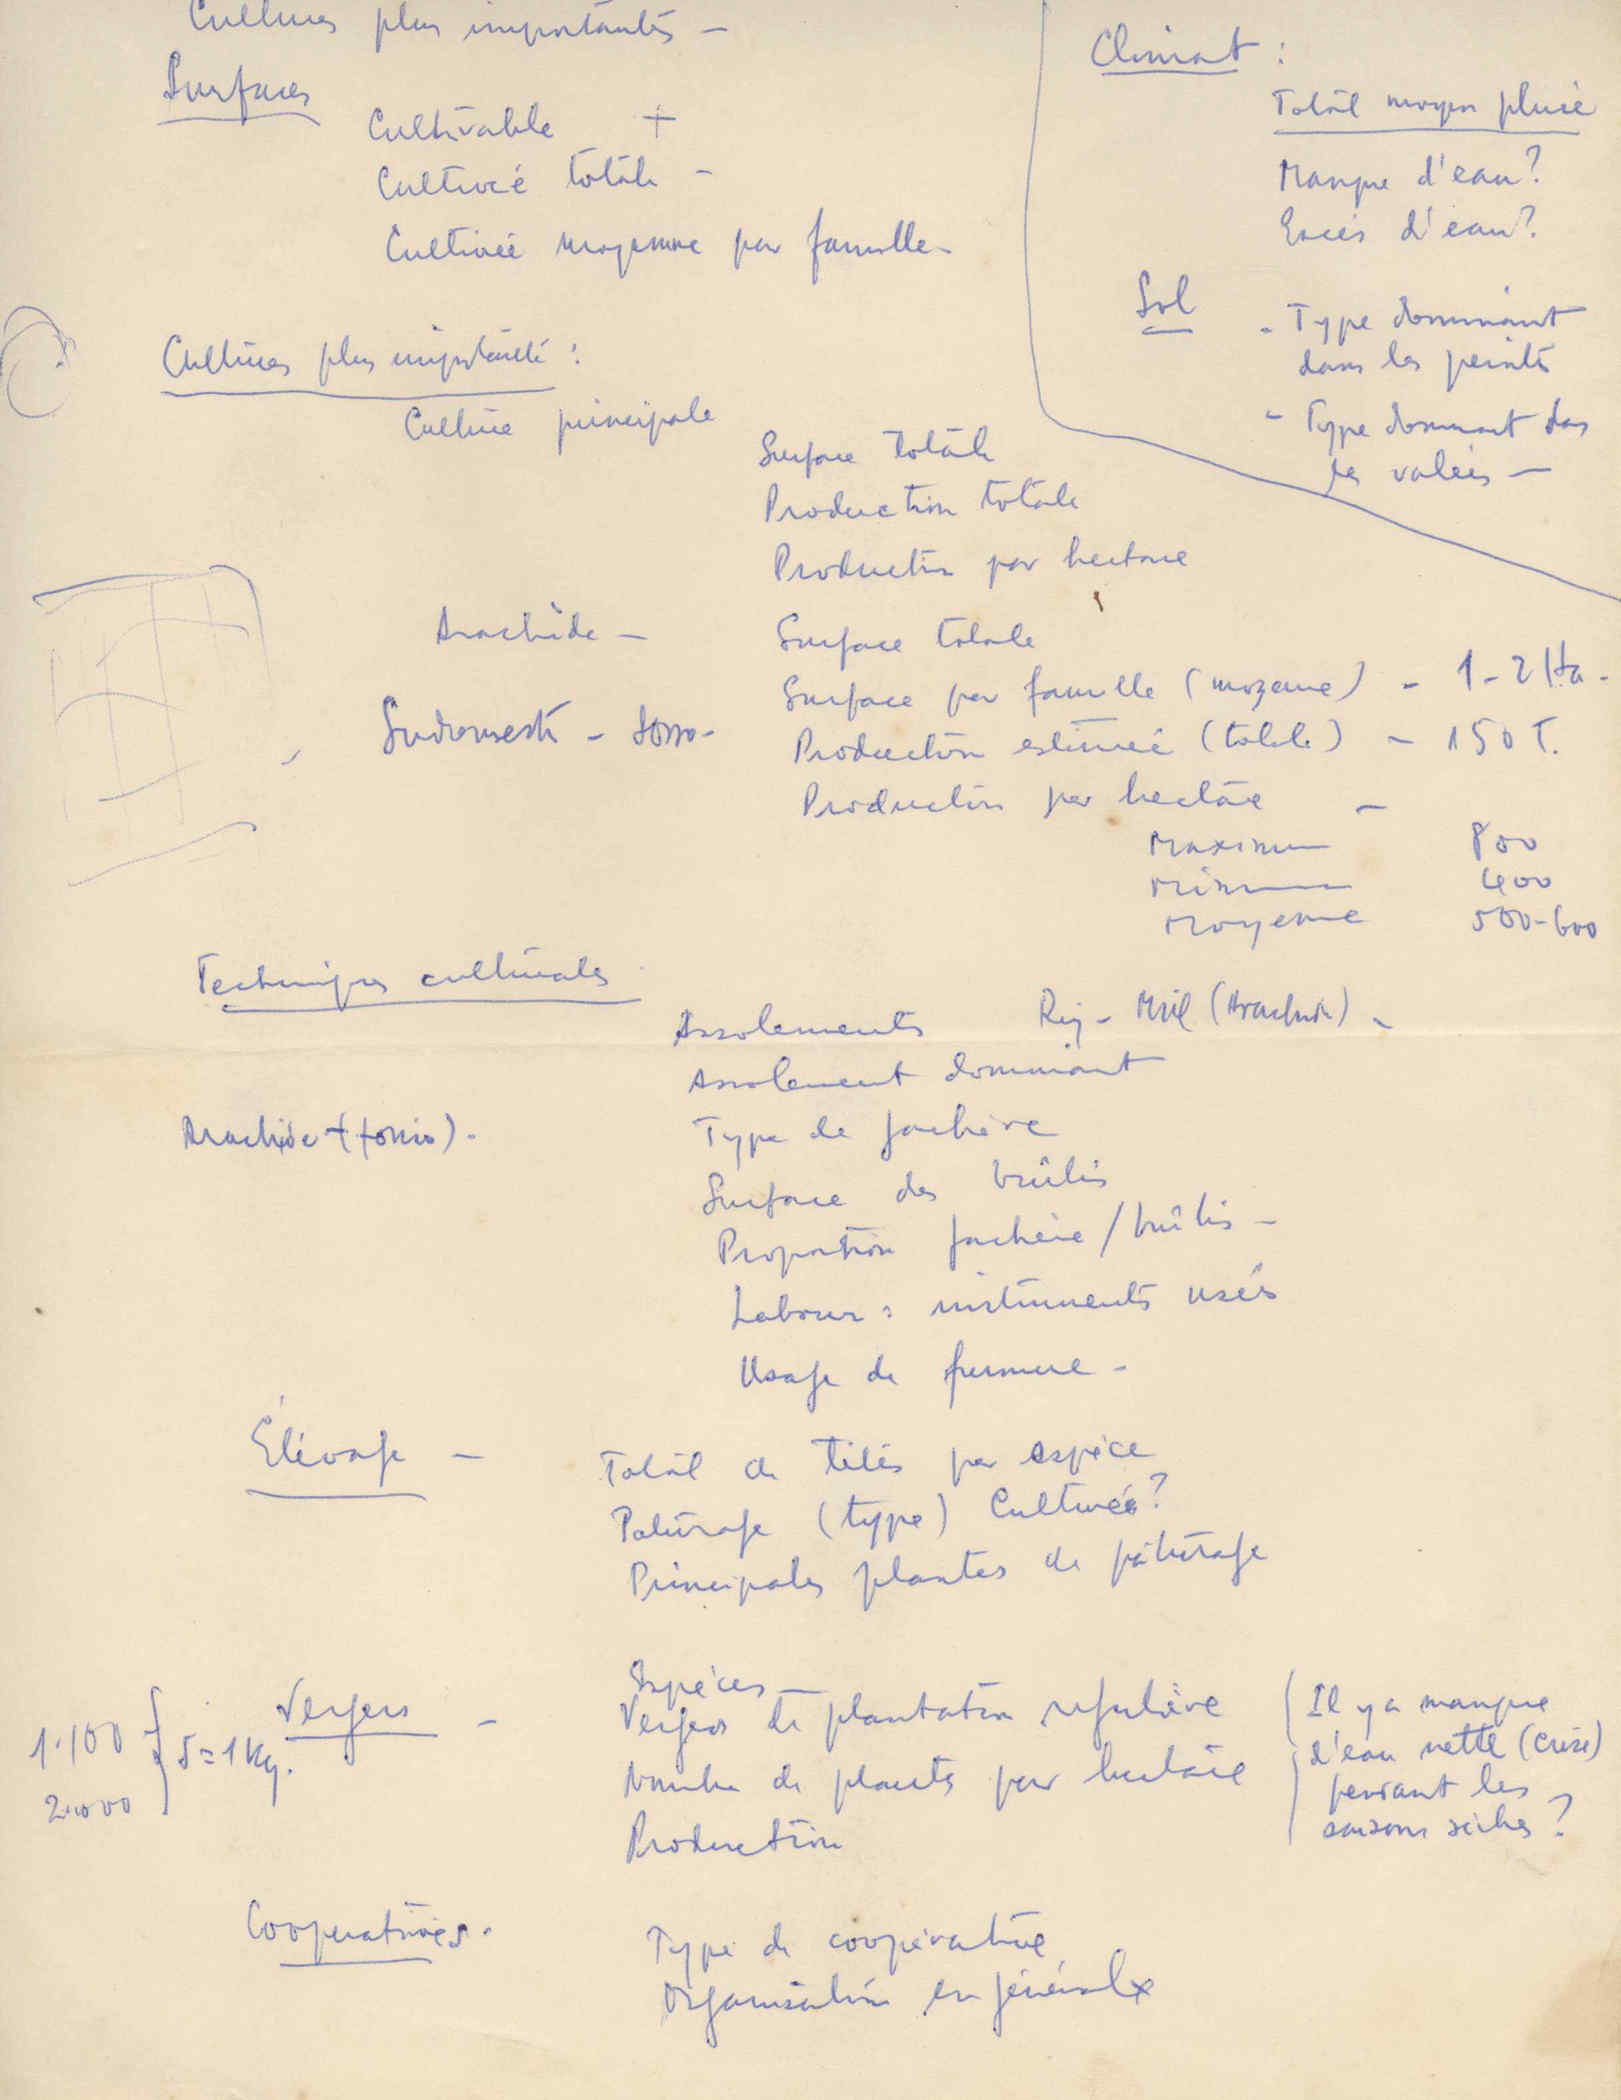 Cultures plus importantes -
Surfaces
Cultivable +
Cultivée totale -
Cultivée moyenne par famille -
Climat :
Total moyen pluie
Manque d'eau ?
Excès d'eau ?
Sol
- Type dominant
dans les pentes
- Type dominant dans
les valées -
Cultures plus importantes :
Culture principale
Surface totale
Production totale
Production par hectare
Arachide -
Surface totale
Surface par famille (moyenne) - 1 - 2 Ha -
Production estimée (totale) - 150 T.
Production par hectare -
Maximum 800
Minimum 400
Moyenne 500-600
Techniques culturales
Assolements Riz - Mil (Arachide) -
Assolement dominant
Arachide + (fonio) -
Type de jachère
Surface des brûlis
Proportion jachère / brûlis -
Labour : instruments usés
Usage de fumure -
Élévage -
Total de têtes par espèce
Paturage (type) Cultivée ?
Principales plantes de pâturage
Vergers -
Espèces -
Vergers de plantation régulière
Nombre de plants par hectare
Production
1.100
2.000
5 = 1 Kg.
Il y a manque
d'eau nette (crise)
pendant les
saisons sèches ?
Cooperatives -
Type de coopérative
Organisation en général